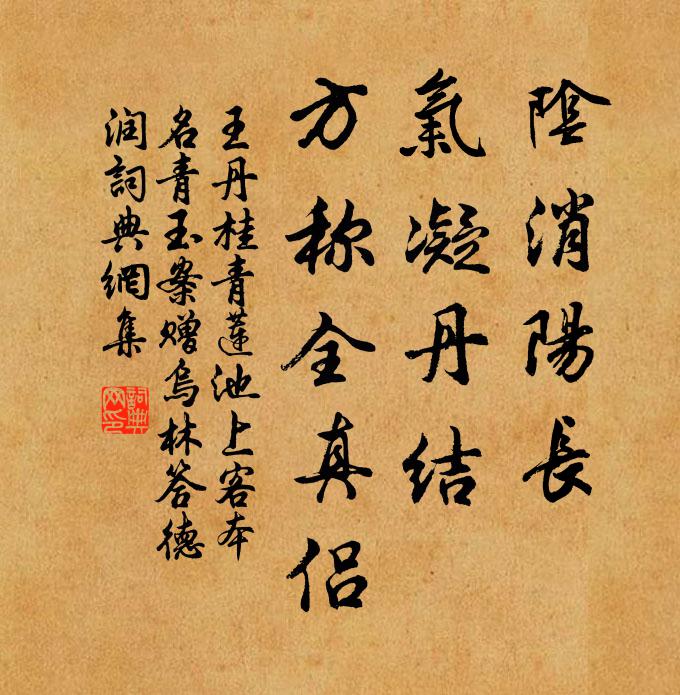 陰消陽長
氣凝丹结
方称全真侣
王丹桂青蓮池上客本
名青玉案赠烏林答德
润詞典網集
詞典网印